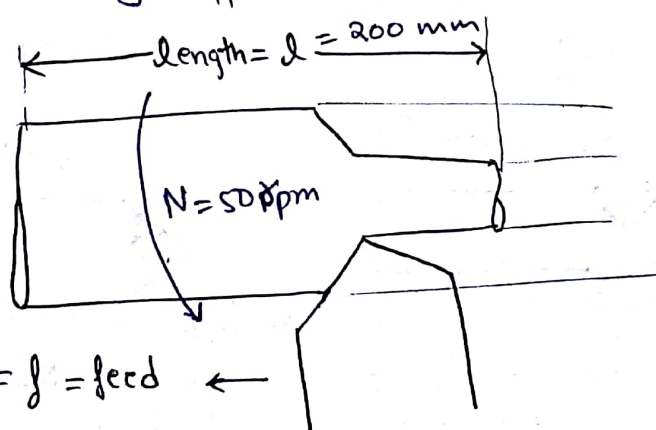 length = l = 200 mm
N = 50 rpm
= f = feed ←